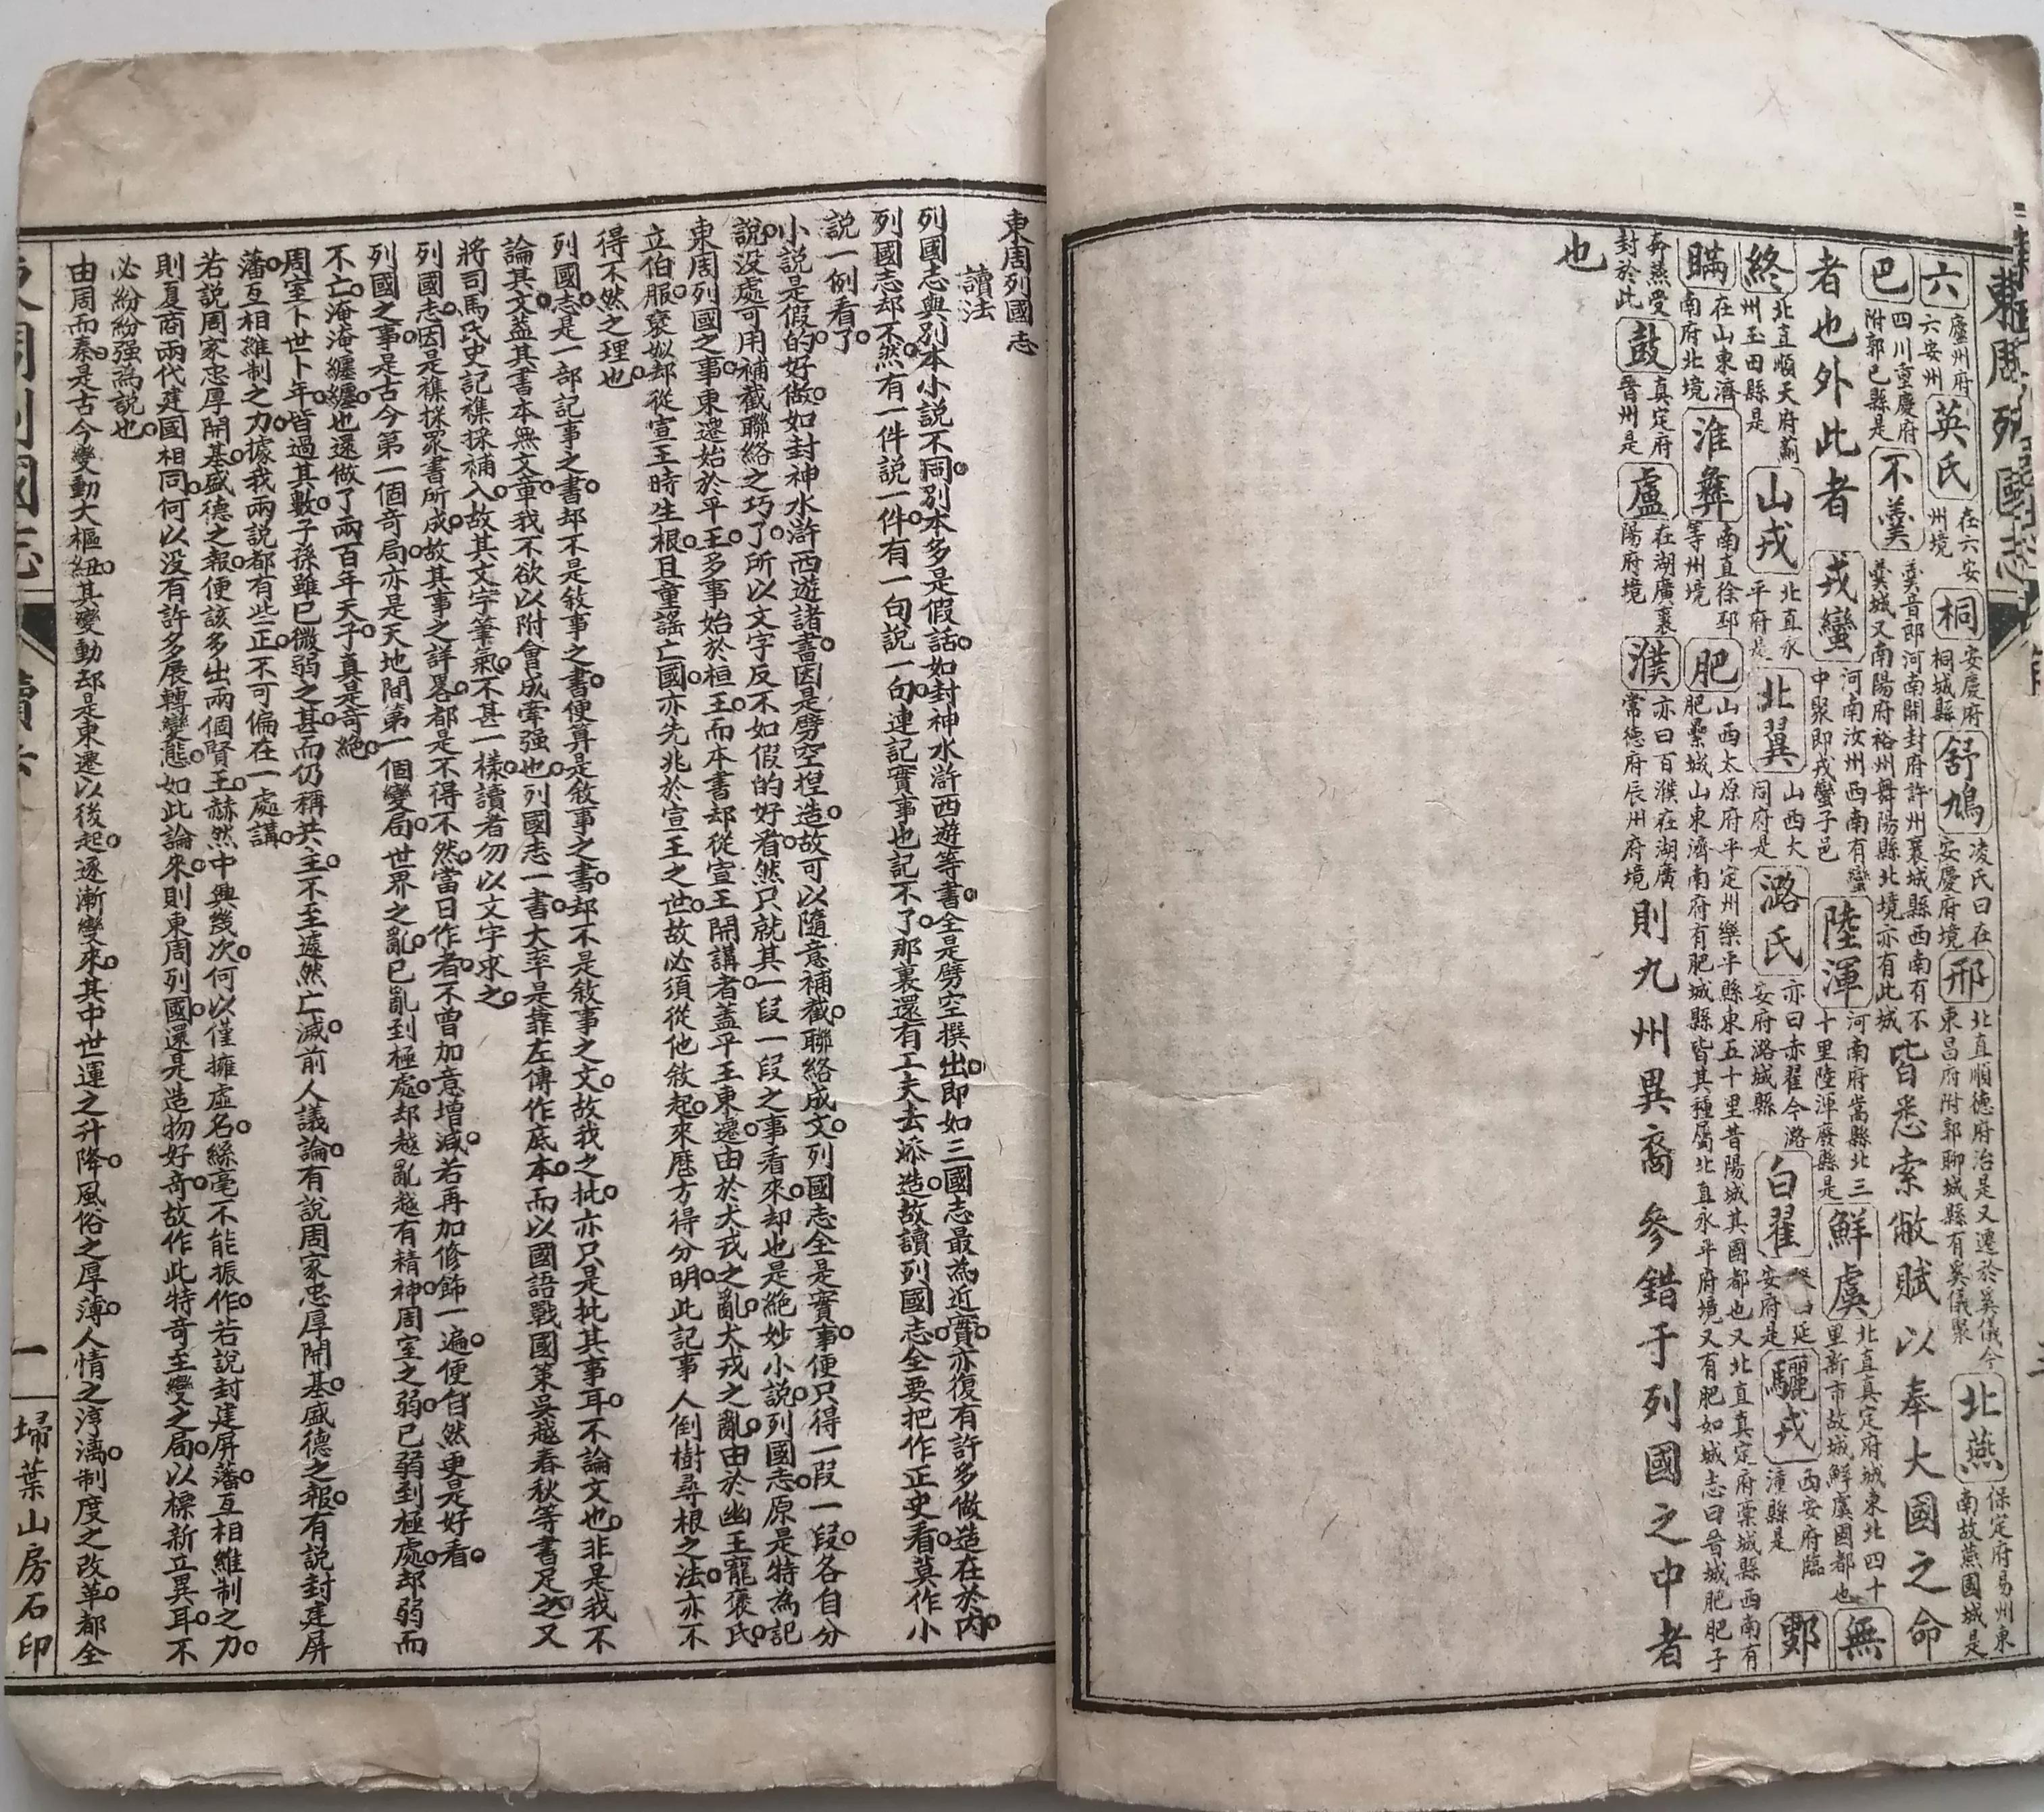 東周列國志
六 廬州府六安州 英氏 在六安州境 桐 安慶府桐城縣 舒鳩 凌氏曰在安慶府境 邢 北直順德府治是又遷於夷儀今東昌府附郭聊城縣有夷儀聚 北燕 保定府易州東南故燕國城是
巴 四川重慶府附郭巴縣是 不羹 羹音郎河南開封府許州襄城縣西南有不羹城又南陽府裕州舞陽縣北境亦有此城 皆悉索敝賦以奉大國之命
者也外此者 戎蠻 河南汝州西南有蠻中聚即戎蠻子邑 陸渾 河南府嵩縣北三十里陸渾廢縣是 鮮虞 北直真定府城東北四十里新市故城鮮虞國都也 無
終 北直順天府薊州玉田縣是 山戎 北直永平府是 北翼 山西大同府是 潞氏 亦曰赤翟今潞安府潞城縣 白翟 延安府是 驪戎 西安府臨潼縣是 鄋
瞞 在山東濟南府北境 淮彝 南直徐邳等州境 肥 山西太原府平定州樂平縣東五十里昔陽城其國都也又北直真定府藁城縣西南有肥纍城山東濟南府有肥城縣皆其種屬北直永平府境又有肥如城志曰晉城肥肥子
奔燕受封於此 鼓 真定府晉州是 盧 在湖廣襄陽府境 濮 亦曰百濮在湖廣常德府辰州府境 則九州異裔參錯于列國之中者
也
東周列國志
讀法
列國志與別本小說不同。別本多是假話。如封神水滸西遊等書。全是劈空撰出。即如三國志最為近實。亦復有許多做造在於內。
列國志却不然。有一件說一件。有一句說一句。連記實事也記不了。那裏還有工夫去添造。故讀列國志。全要把作正史看。莫作小
說一例看了。
小說是假的好做。如封神水滸西遊諸書。因是劈空揑造。故可以隨意補截。聯絡成文。列國志全是實事。便只得一段一段。各自分
說。没處可用補截聯絡之巧了。所以文字反不如假的好看。然只就其一段一段之事看來。却也是絕妙小說。列國志。原是特為記
東周列國之事。東遷始於平王。多事始於桓王。而本書却從宣王開講者。蓋平王東遷。由於犬戎之亂。犬戎之亂。由於幽王寵褒氏。
立伯服。褒姒却從宣王時生根。且童謠亡國。亦先兆於宣王之世。故必須從他敘起。來歷方得分明。此記事人倒樹尋根之法。亦不
得不然之理也。
列國志。是一部記事之書。却不是敘事之書。便算是敘事之書。却不是敘事之文。故我之批。亦只是批其事耳。不論文也。非是我不
論其文。蓋其書本無文章。我不欲以附會成牽強也。列國志一書。大率是靠左傳作底本。而以國語戰國策吳越春秋等書足之。又
將司馬氏史記襍採補入。故其文字筆氣。不甚一樣。讀者勿以文字求之。
列國志。因是襍採眾書所成。故其事之詳畧。都是不得不然。當日作者。不曾加意增減。若再加修飾一遍。便自然更是好看。
列國之事。是古今第一個奇局。亦是天地間第一個變局。世界之亂。已亂到極處。却越亂越有精神。周室之弱。已弱到極處。却弱而
不亡。淹淹纏纏也還做了兩百年天子。真是奇絕。
周室卜世卜年。皆過其數。子孫雖已微弱之甚。而仍稱共主。不至遽然亡滅。前人議論。有說周家忠厚開基。盛德之報。有說封建屏
藩。互相維制之力。據我兩說都有些正。不可偏在一處講。
若說周家忠厚開基。盛德之報。便該多出兩個賢王。赫然中興幾次。何以僅擁虛名。絲毫不能振作。若說封建屏藩。互相維制之力。
則夏商兩代建國相同。何以没有許多展轉變態。如此論來。則東周列國。還是造物好奇。故作此特奇至變之局。以標新立異耳。不
必紛紛强為說也。
由周而秦。是古今變動大樞紐。其變動却是東遷以後起。逐漸變來。其中世運之升降。風俗之厚薄。人情之淳漓。制度之改革。都全
東周列國志 讀法 一 埽葉山房石印